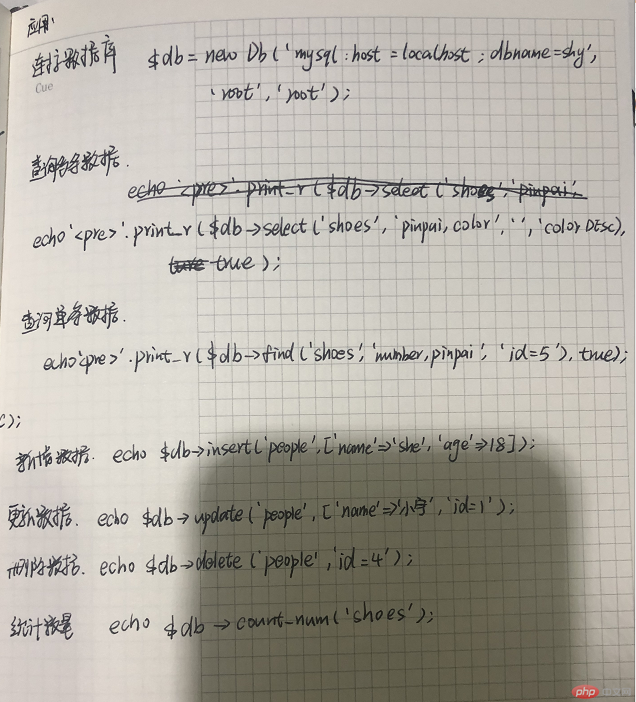 应用:
连接数据库 $db = new Db('mysql:host=localhost;dbname=shy',
Cue
'root','root');
查询多条数据.
echo '<pre>'.print_r($db->select('shoes','pinpai',
echo '<pre>'.print_r($db->select('shoes','pinpai,color','','color DESC),
true);
查询单条数据.
echo '<pre>'.print_r($db->find('shoes','number,pinpai','id=5'),true);
c);
新增数据. echo $db->insert('people',['name'=>'she','age'=>18]);
更新数据. echo $db->update('people',['name'=>'小宇','id=1');
删除数据. echo $db->delete('people','id=4');
统计数量 echo $db->count_num('shoes');
php